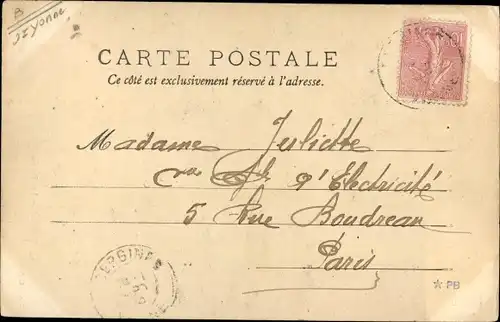 B
Yonne
CARTE POSTALE
Ce côté est exclusivement réservé à l'adresse.
Madame Juliette
d'Electricité
5 Rue Boudreau
Paris
SERGINES
* PB